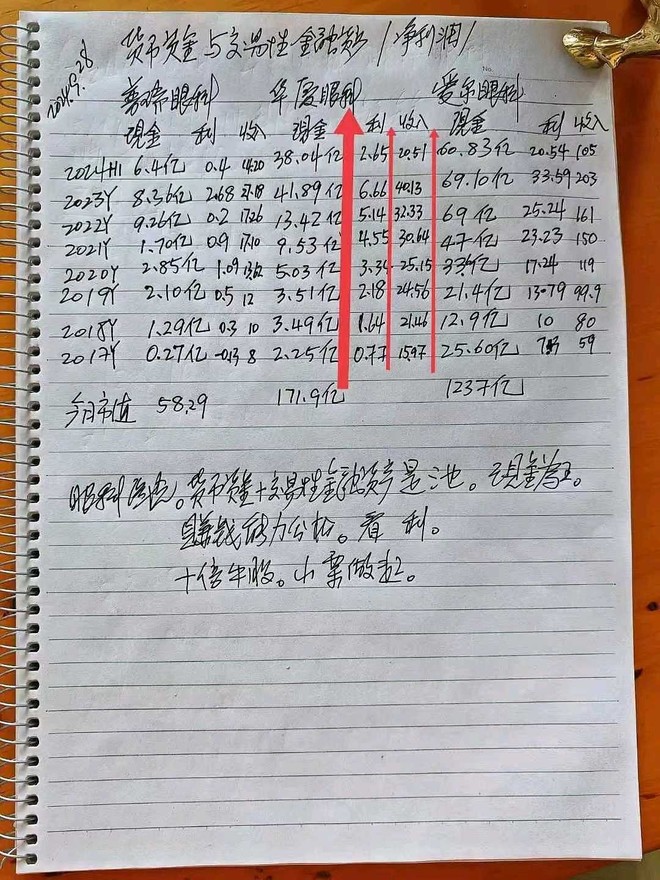 2024.9.28
货币资金与交易性金融资产/净利润/
普瑞眼科 华厦眼科 爱尔眼科
现金 利 收入 现金 利 收入 现金 利 收入
2024H1 6.4亿 0.4 14.20 38.04亿 2.65 20.51 60.83亿 20.54 105
2023Y 8.36亿 2.68 27.18 41.89亿 6.66 40.13 69.10亿 33.59 203
2022Y 9.26亿 0.2 17.26 13.42亿 5.14 32.33 69亿 25.24 161
2021Y 1.70亿 0.9 17.10 9.53亿 4.55 30.64 47亿 23.23 150
2020Y 2.85亿 1.09 13.62 5.03亿 3.34 25.15 亿 17.24 119
2019Y 2.10亿 0.5 12 3.51亿 2.18 24.56 21.4亿 13.79 99.9
2018Y 1.29亿 0.3 10 3.49亿 1.64 21.46 12.9亿 10 80
2017Y 0.27亿 -0.13 8 2.25亿 0.77 15.97 25.60亿 59
今日市值 58.29 171.9亿 1237亿
眼科医院。货币资金+交易性金融资产是池。现金为王。
赚钱能力分析。看利。
十倍牛股。小票做起。